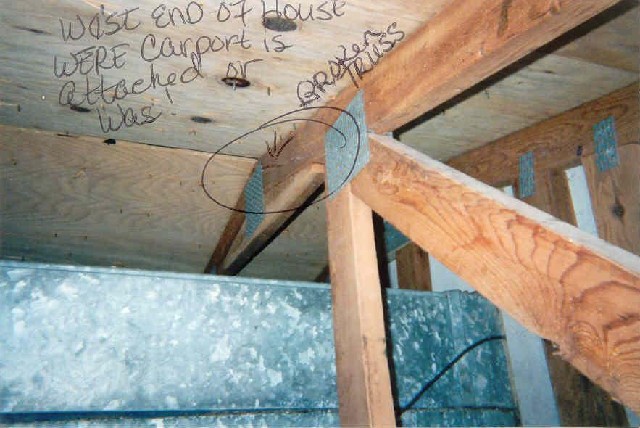 West End of House
WERE Carport is
attached or
was
BROKEN
TRUSS